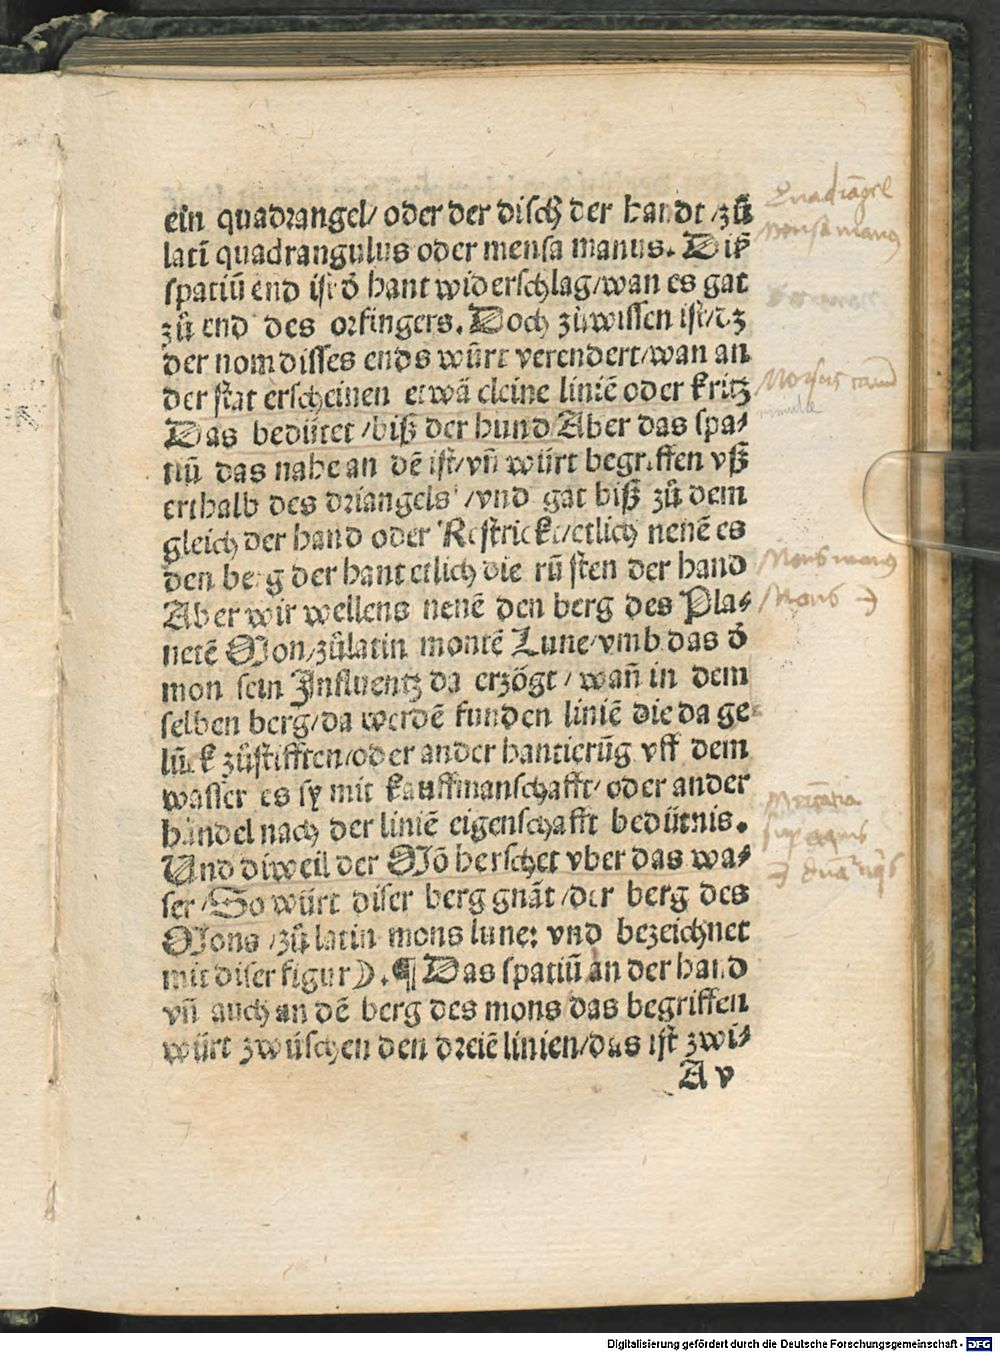 ein quadrangel/ oder der disch der handt /zů
latī quadrangulus oder mensa manus. Diß
spatiū end ist ð hant widerschlag/wan es gat
zů end des orfingers. Doch zůwissen ist/dz
der nom disses ends würt verendert/wan an
der stat erscheinen etwā cleine liniē oder kritz
Das bedütet /biß der hund Aber das spa⸗
tiū das nahe an dē ist/vn̄ würt begriffen vß
erthalb des driangels /vnd gat biß zů dem
gleich der hand oder Restricke/etlich nenē es
den berg der hant etlich die rū sten der hand
Aber wir wellens nenē den berg des Pla⸗
netē Mon/zůlatin montē Lune/vmb das ð
mon sein Influentz da erzögt / wan̄ in dem
selben berg/da werdē funden liniē die da ge
lück zůstifften/oder ander hantierūg vff dem
wasser es sy mit kauffmanschafft/ oder ander
händel nach der liniē eigenschafft bedütnis.
Und diweil der Mō herschet vber das wa⸗
ser/So würt diser berg gnāt /der berg des
Mons /zů latin mons lune: vnd bezeichnet
mit diser figur ☽. ¶ Das spatiū an der hand
vn̄ auch an dē berg des mons das begriffen
würt zwüschen den dreiē linien/das ist zwi⸗
A v
Quadrāgel
Mensa manus
Morsus canū
Mons manus
Mons ☽
Mercatia
sup aquis
Digitalisierung gefördert durch die Deutsche Forschungsgemeinschaft - DFG